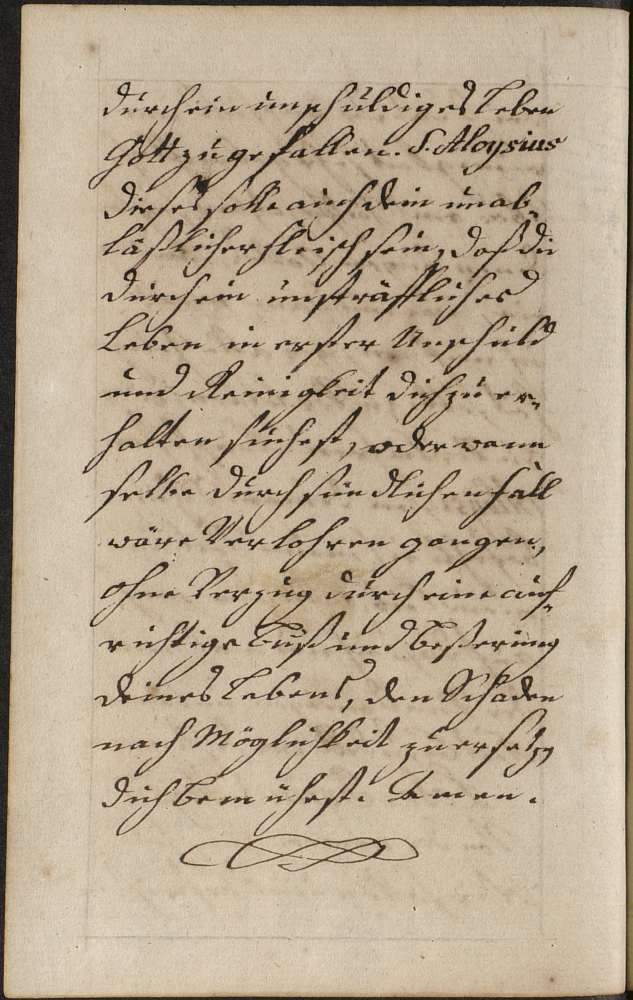 durch ein unschuldiges Leben
Gott zu gefallen. S. Aloysius
dieses solle auch dein unab-
läßlicher fleiß sein, daß du
durch ein unsträffliches
Leben in erster Unschuld
und Reinigkeit dich zu er-
halten suchest, oder wann
selbe durch sündlichen fall
wäre Verlohren gangen,
ohne Verzug durch eine auf-
richtige Buß und beßerung
deines Lebens, den Schaden
nach Möglichkeit zu ersetzen
dich bemühest. Amen.